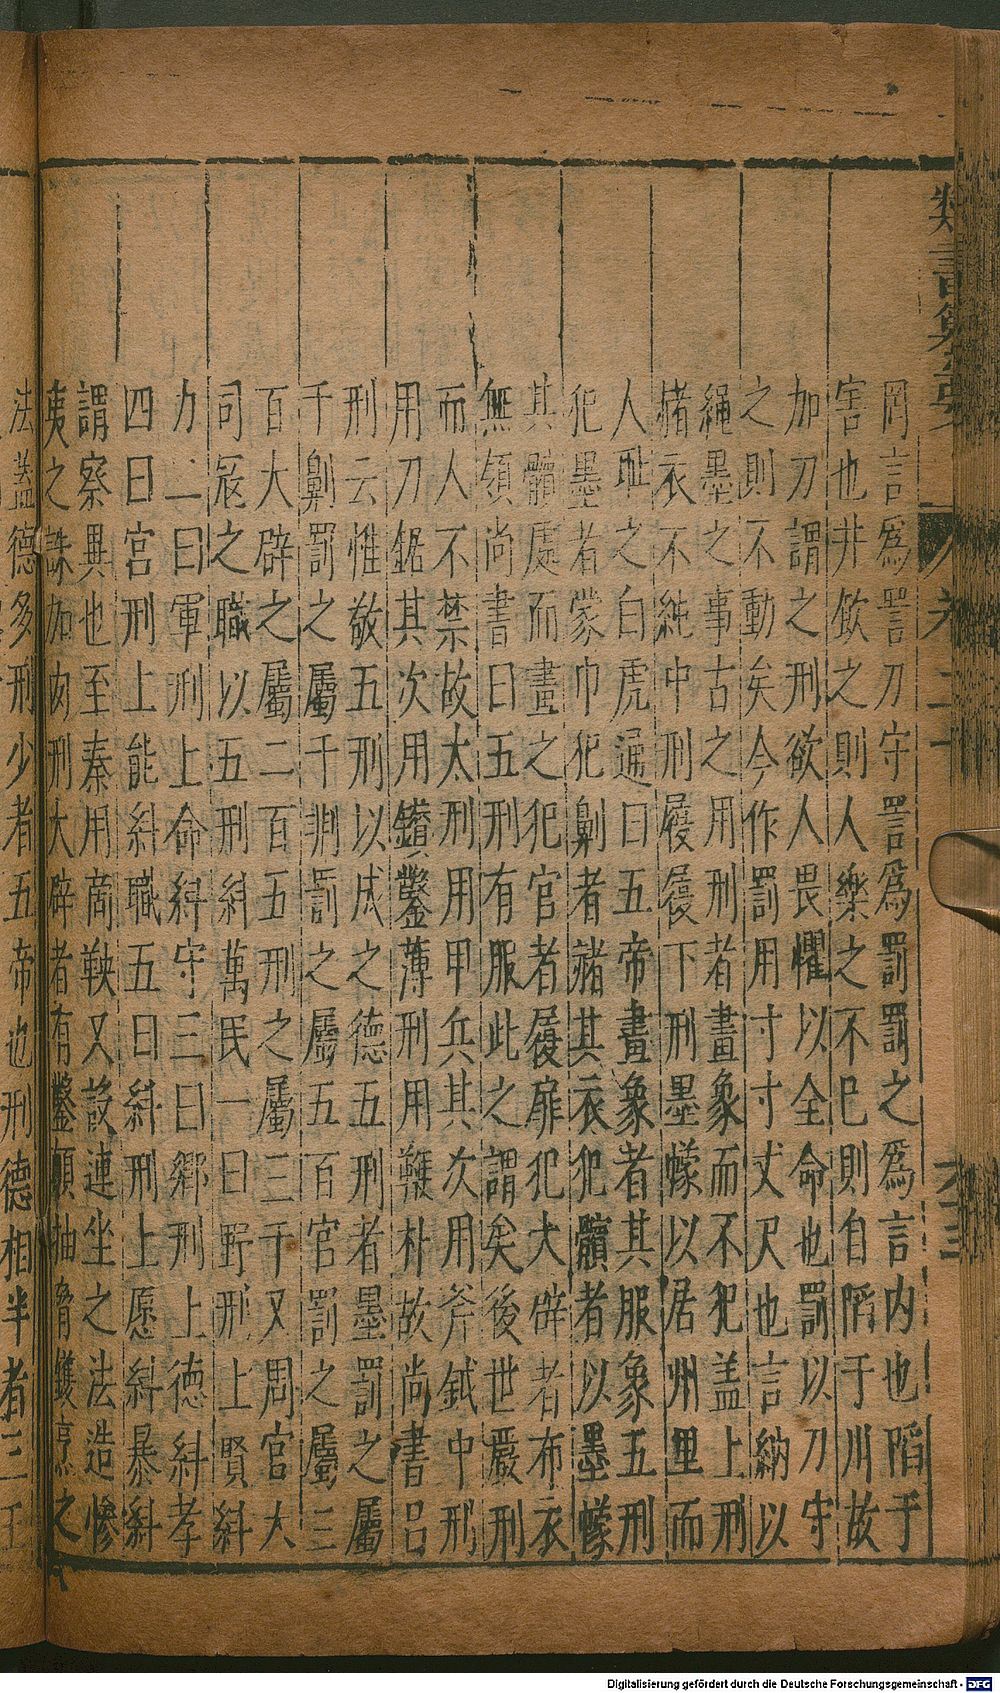 類書纂要 卷二十 六三
罔言爲詈刀守詈爲罰罰之爲言内也陷于
害也井飲之則人樂之不已則自陷于川故
加刀謂之刑欲人畏懼以全命也罰以刀守
之則不動矣今作罰用寸寸丈尺也言納以
繩墨之事古之用刑者畫象而不犯盖上刑
褚衣不純中刑屨屨下刑墨幪以居州里而
人耻之白虎通曰五帝畫象者其服象五刑
犯墨者蒙巾犯劓者赭其衣犯髕者以墨幪
其髕處而畫之犯宫者履扉犯大辟者布衣
無領尚書曰五刑有服此之謂矣後世嚴刑
而人不禁故太刑用甲兵其次用斧鉞中刑
用刀鋸其次用鑽鑿薄刑用鞭朴故尚書吕
刑云惟敬五刑以成之德五刑者墨罰之屬
千劓罰之屬千剕罰之屬五百宫罰之屬三
百大辟之屬二百五刑之屬三千又周官大
司寇之職以五刑糾萬民一曰野刑上賢糾
力二曰軍刑上命糾守三曰鄉刑上德糾孝
四曰官刑上能糾職五曰糾刑上愿糾暴糾
謂察異也至秦用商鞅又設連坐之法造慘
夷之誅加肉刑大辟者有鑿顛抽脅鑊烹之
法盖德多刑少者五帝也刑德相半者三王
Digitalisierung gefördert durch die Deutsche Forschungsgemeinschaft - DFG